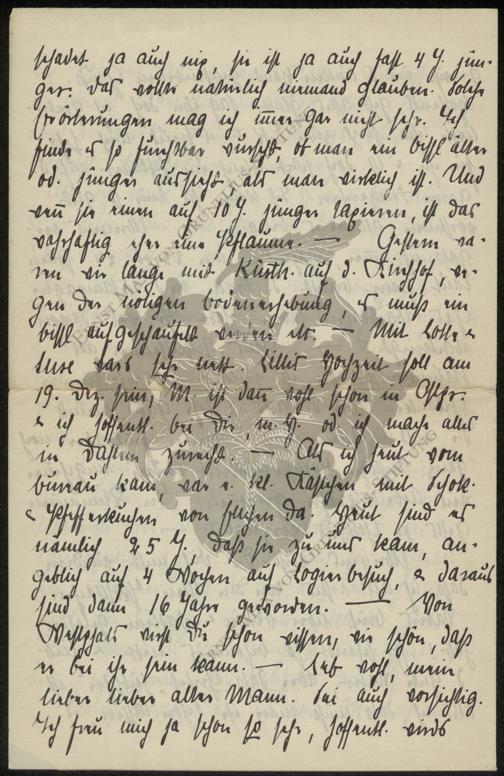 schadet ja auch nix, sie ist ja auch fast 4 J. jün-
ger. Das wollte natürlich niemand glauben. Solche
Erörterungen mag ich im̄er gar nicht sehr. Ich
finde es so furchtbar wurscht, ob man ein bissl älter
od. jünger aussieht als man wirklich ist. Und
wen̄ sie einen auf 10 J. jünger tapieren, ist das
wahrhaftig eher eine Pflaume. — Gestern wa-
ren wir lange mit Kursth. auf d. Kirchhof, we-
gen der nötigen Bodenerhebung, es muß ein
bissl aufgeschaufelt werden etc. — Mit Lotte &
Suse wars sehr nett. Lillis Hochzeit soll am
19. Dez. sein, M. ist dan̄ wohl schon in Ostpr.
& ich hoffentl. bei Dir, m. H. od ich mache alles
in Dahlem zurecht. — Als ich heut vom
Bureau kam, war e. kl. Käschen mit Schok.
& Pfefferkuchen von da. Heut sind es
nämlich 25 J. daß sie zu uns kam, an-
geblich auf 4 Wochen auf Logierbesuch, & daraus
sind dann 16 Jahre geworden. — Von
Westphals wirst Du schon wissen, wie schön, daß
er bei ihr sein kann. — Leb wohl, mein
lieber lieber alter Mann. Sei auch vorsichtig.
Ich freu mich ja schon so sehr, hoffentl. wirds